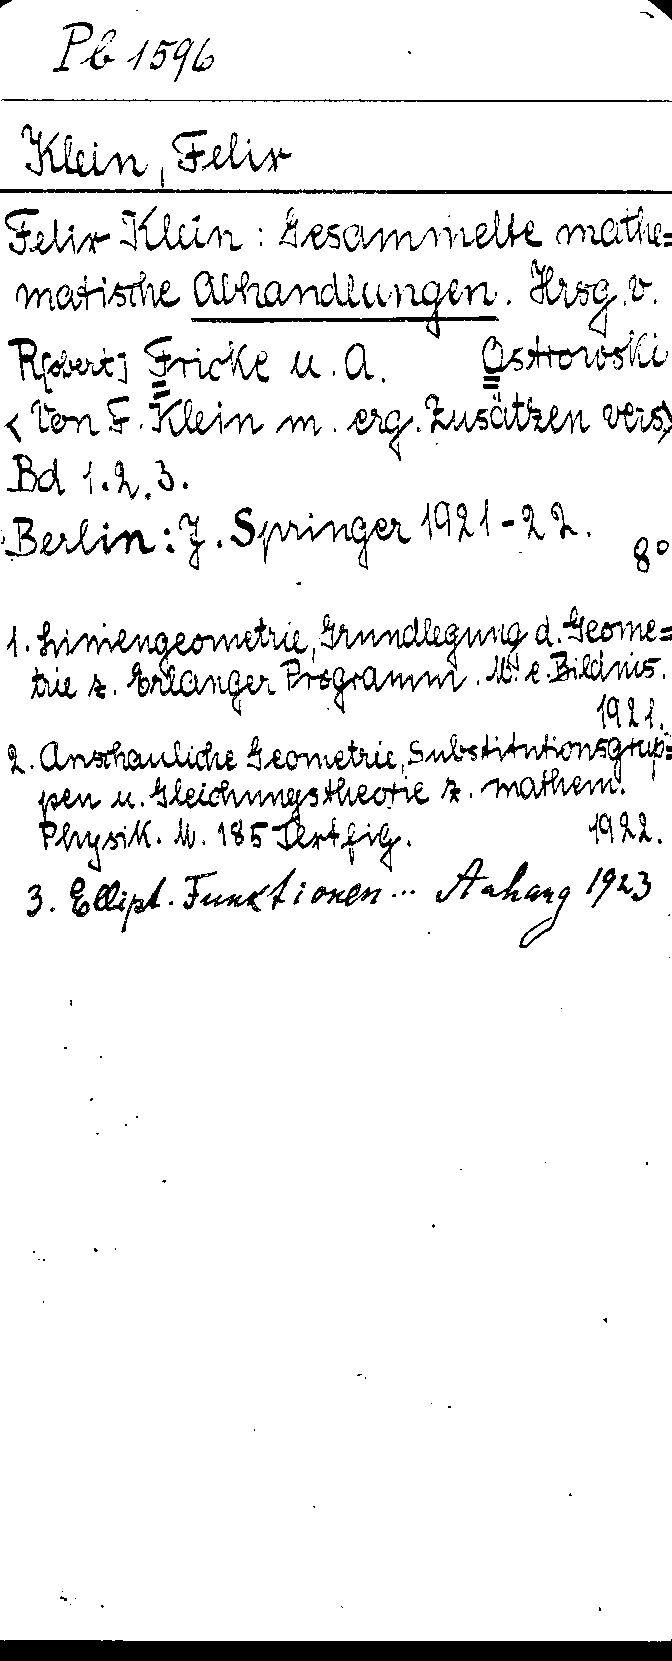 Pb 1596
Klein, Felix
Felix Klein: Gesammelte mathe=
matische Abhandlungen. Hrsg. v.
R[obert] Fricke u. A. Ostrowski
<Von F. Klein m. erg. Zusätzen vers>
Bd 1.2.3.
Berlin: J. Springer 1921-22. 8°
1. Liniengeometrie, Grundlegung d. Geome=
trie z. Erlanger Programm. M. e. Bildnis.
1921.
2. Anschauliche Geometrie, Substitutionsgrup=
pen u. Gleichungstheorie z. mathem.
Physik. M. 185 Textfig. 1922.
3. Ellipt. Funktionen... Anhang 1923